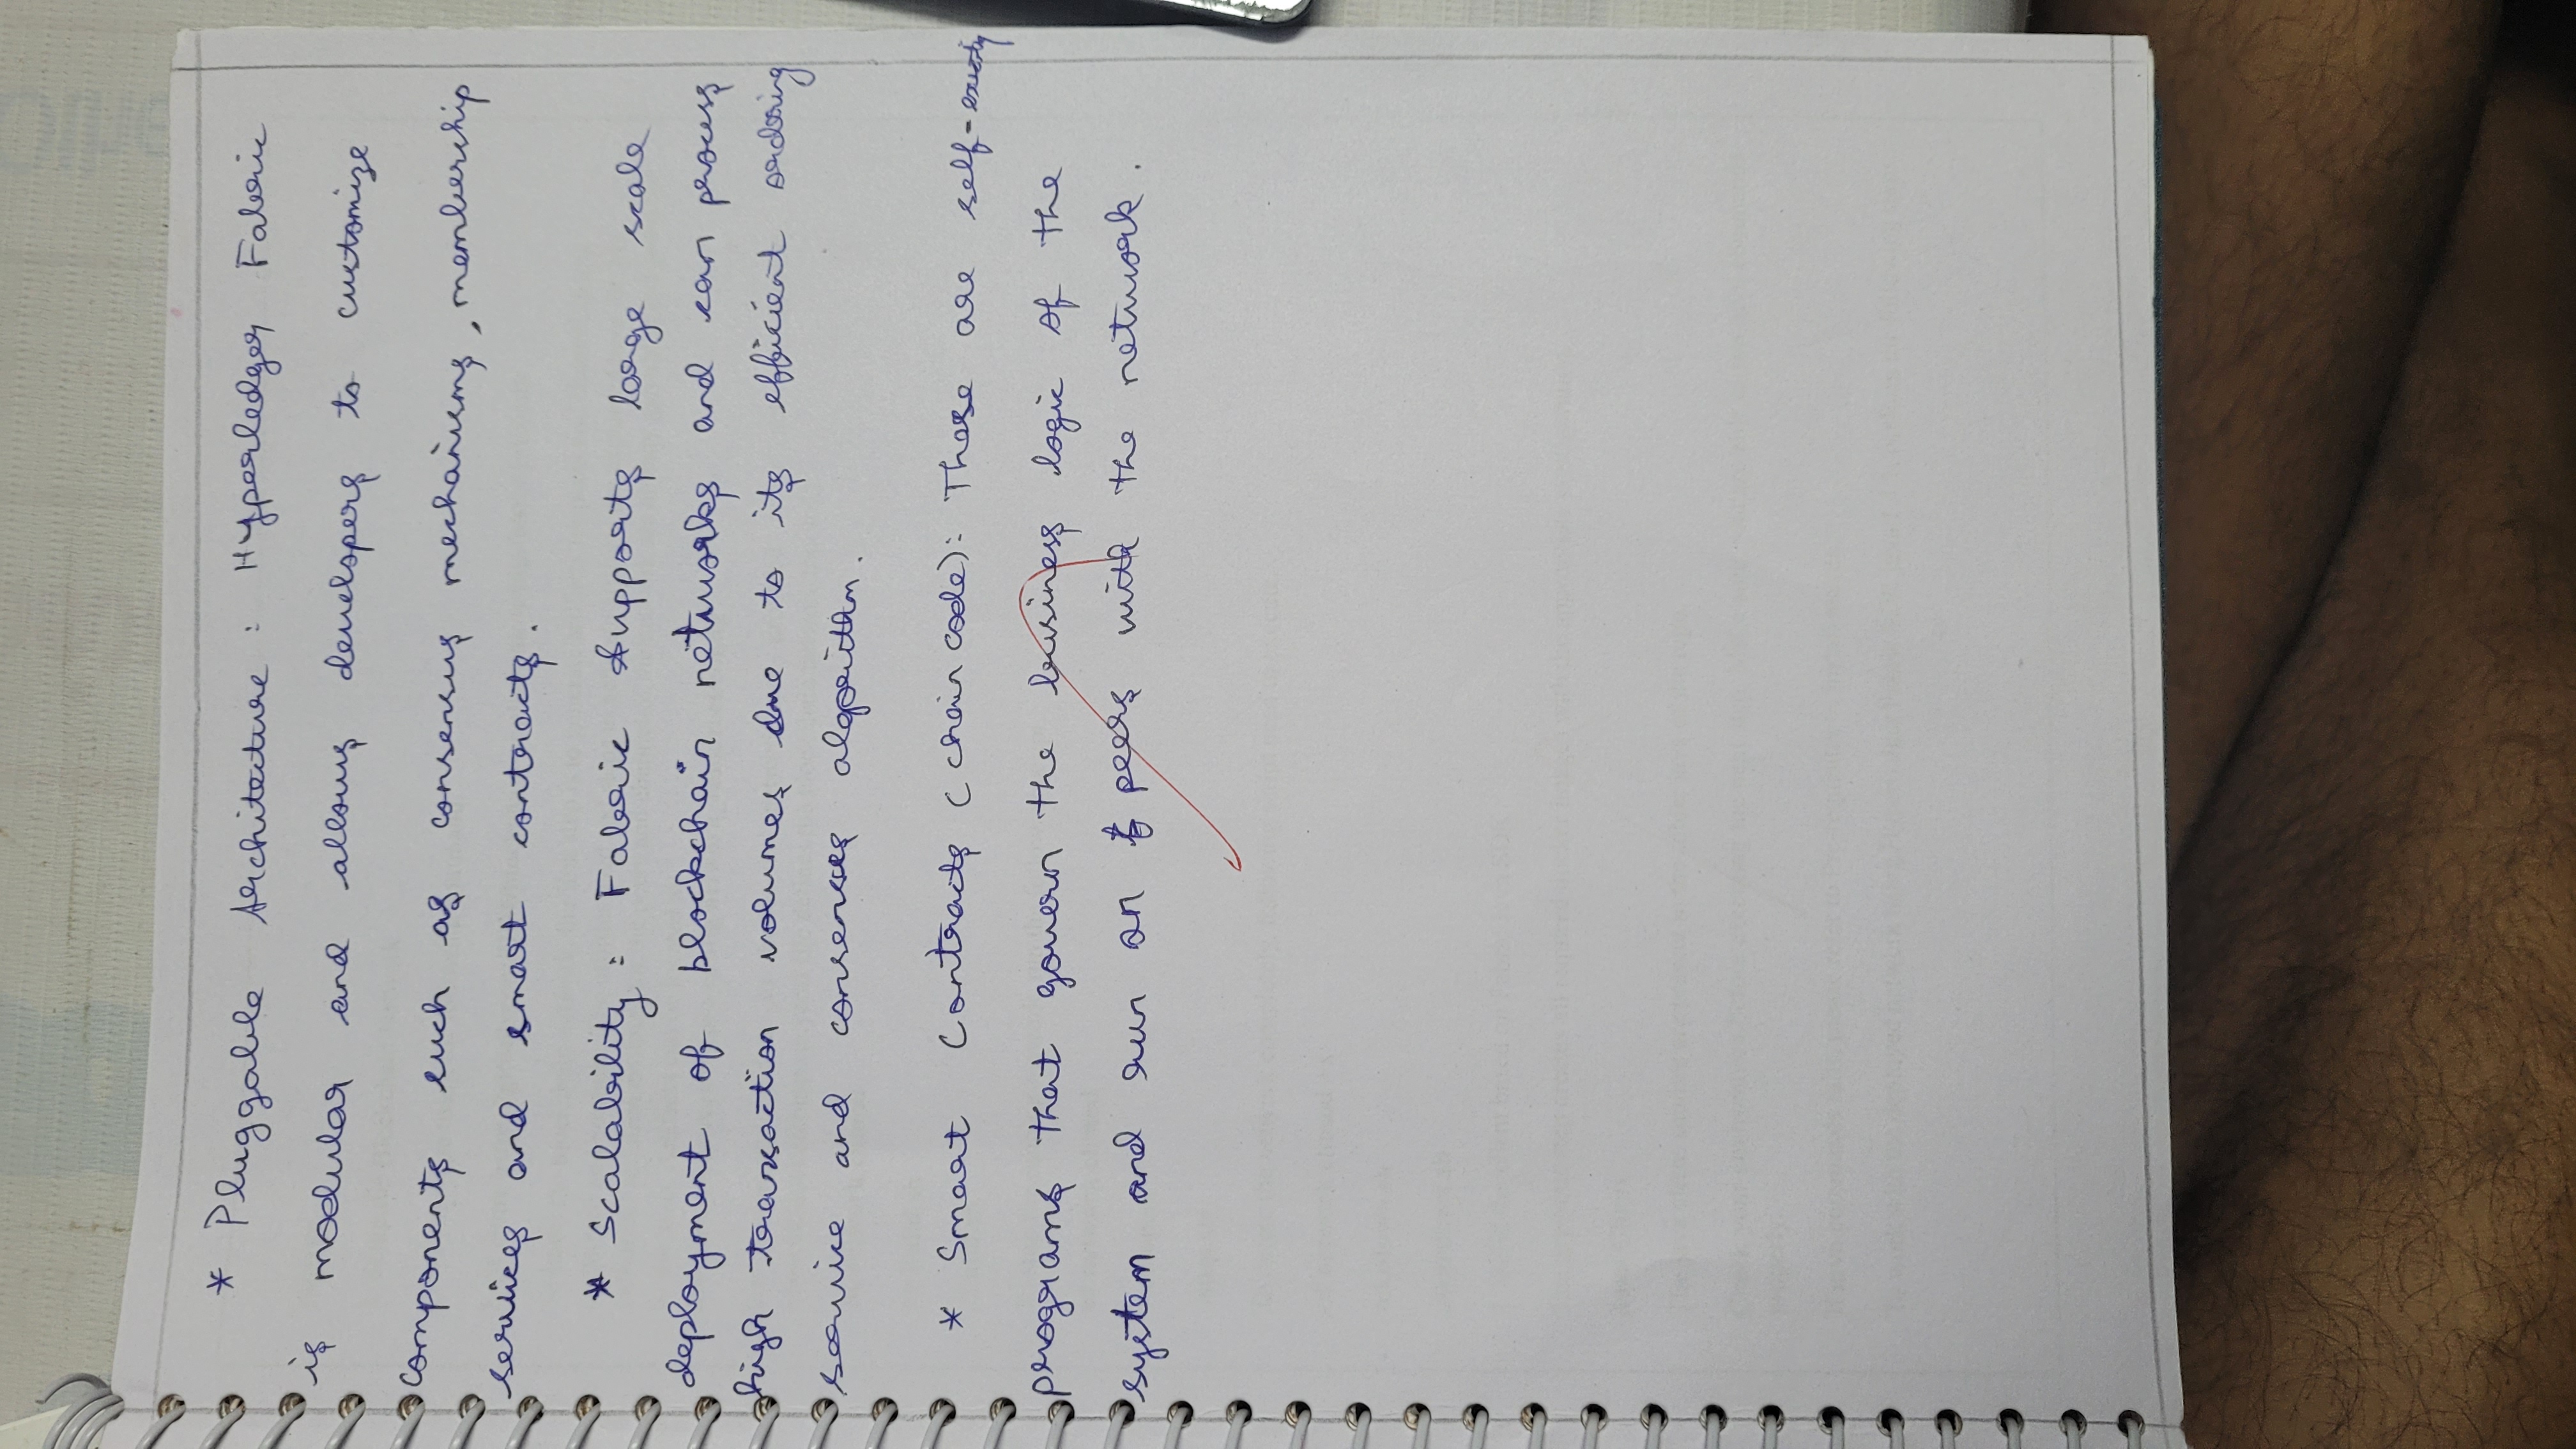 * Pluggable Architecture : Hyperledger Fabric
is modular and allows developers to customize
components such as consensus mechanisms, membership
services and smart contracts.
* Scalability : Fabric supports large scale
deployment of blockchain networks and can process
high transaction volumes due to its efficient ordering
service and consensus algorithm.
* Smart Contracts (chain code): These are self-
programs that govern the business logic of the
system and run on peers with the network.